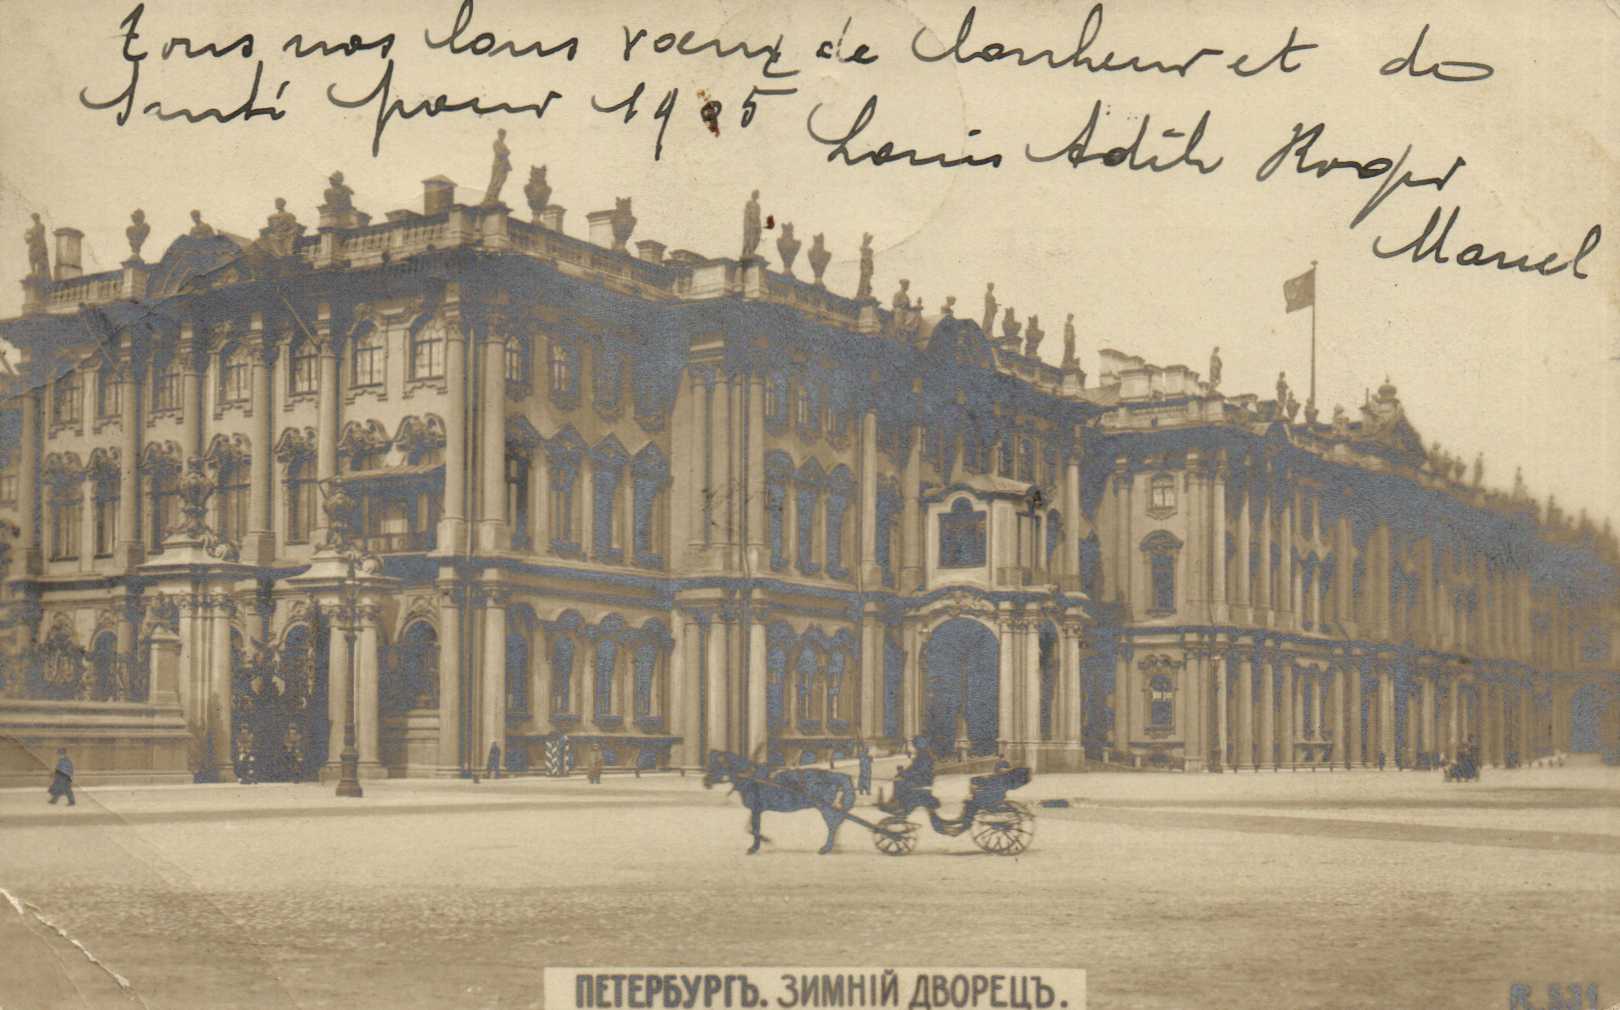 tous nos bons voeux de bonheur et de
santé pour 1905 Louis Adèle Roger
Marcel
ПЕТЕРБУРГЪ. ЗИМНІЙ ДВОРЕЦЪ.
531